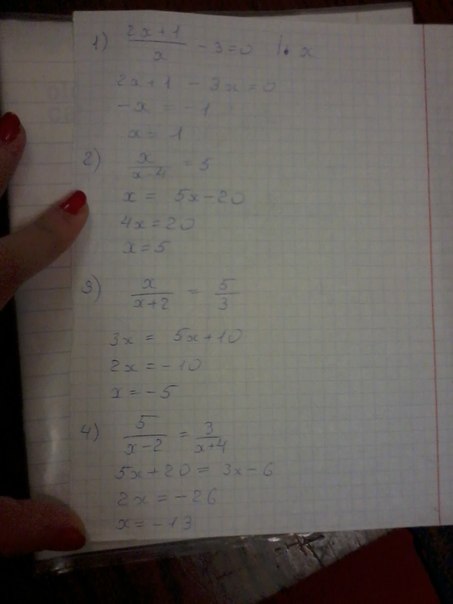 1) (2x+1)/x - 3 = 0 |· x
2x+1 - 3x = 0
-x = -1
x = 1
2) x/(x-4) = 5
x = 5x-20
4x = 20
x = 5
3) x/(x+2) = 5/3
3x = 5x+10
2x = -10
x = -5
4) 5/(x-2) = 3/(x+4)
5x+20 = 3x-6
2x = -26
x = -13